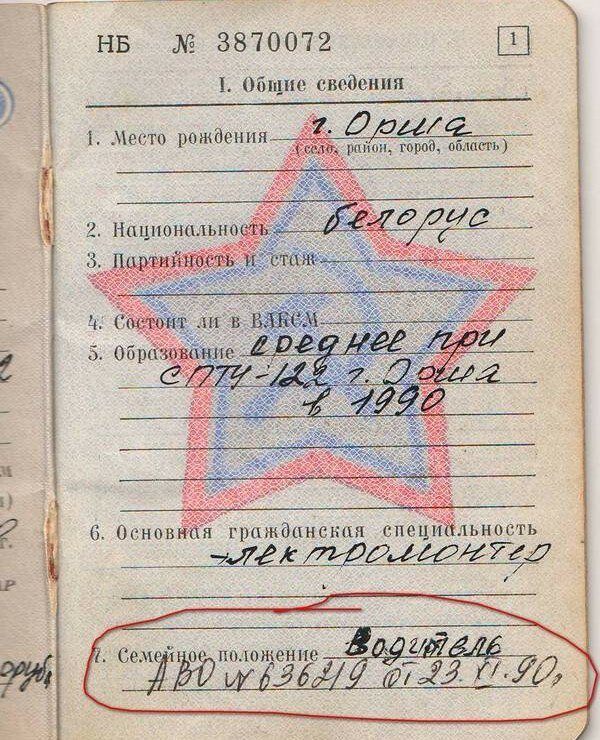 НБ № 3870072 1
I. Общие сведения
1. Место рождения г. Орша
(село, район, город, область)
2. Национальность белорус
3. Партийность и стаж
4. Состоит ли в ВЛКСМ
5. Образование среднее при
СПТУ-122 г. Орша
в 1990
6. Основная гражданская специальность
электромонтер
7. Семейное положение Водитель
АВО № 636219 от 23.VI.90.